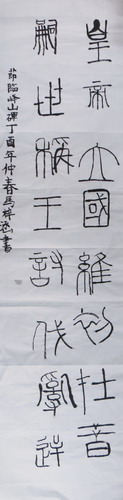 皇帝立國維初在昔
嗣世稱王討伐亂逆
節臨嶧山碑丁酉年仲春馬梓涵書